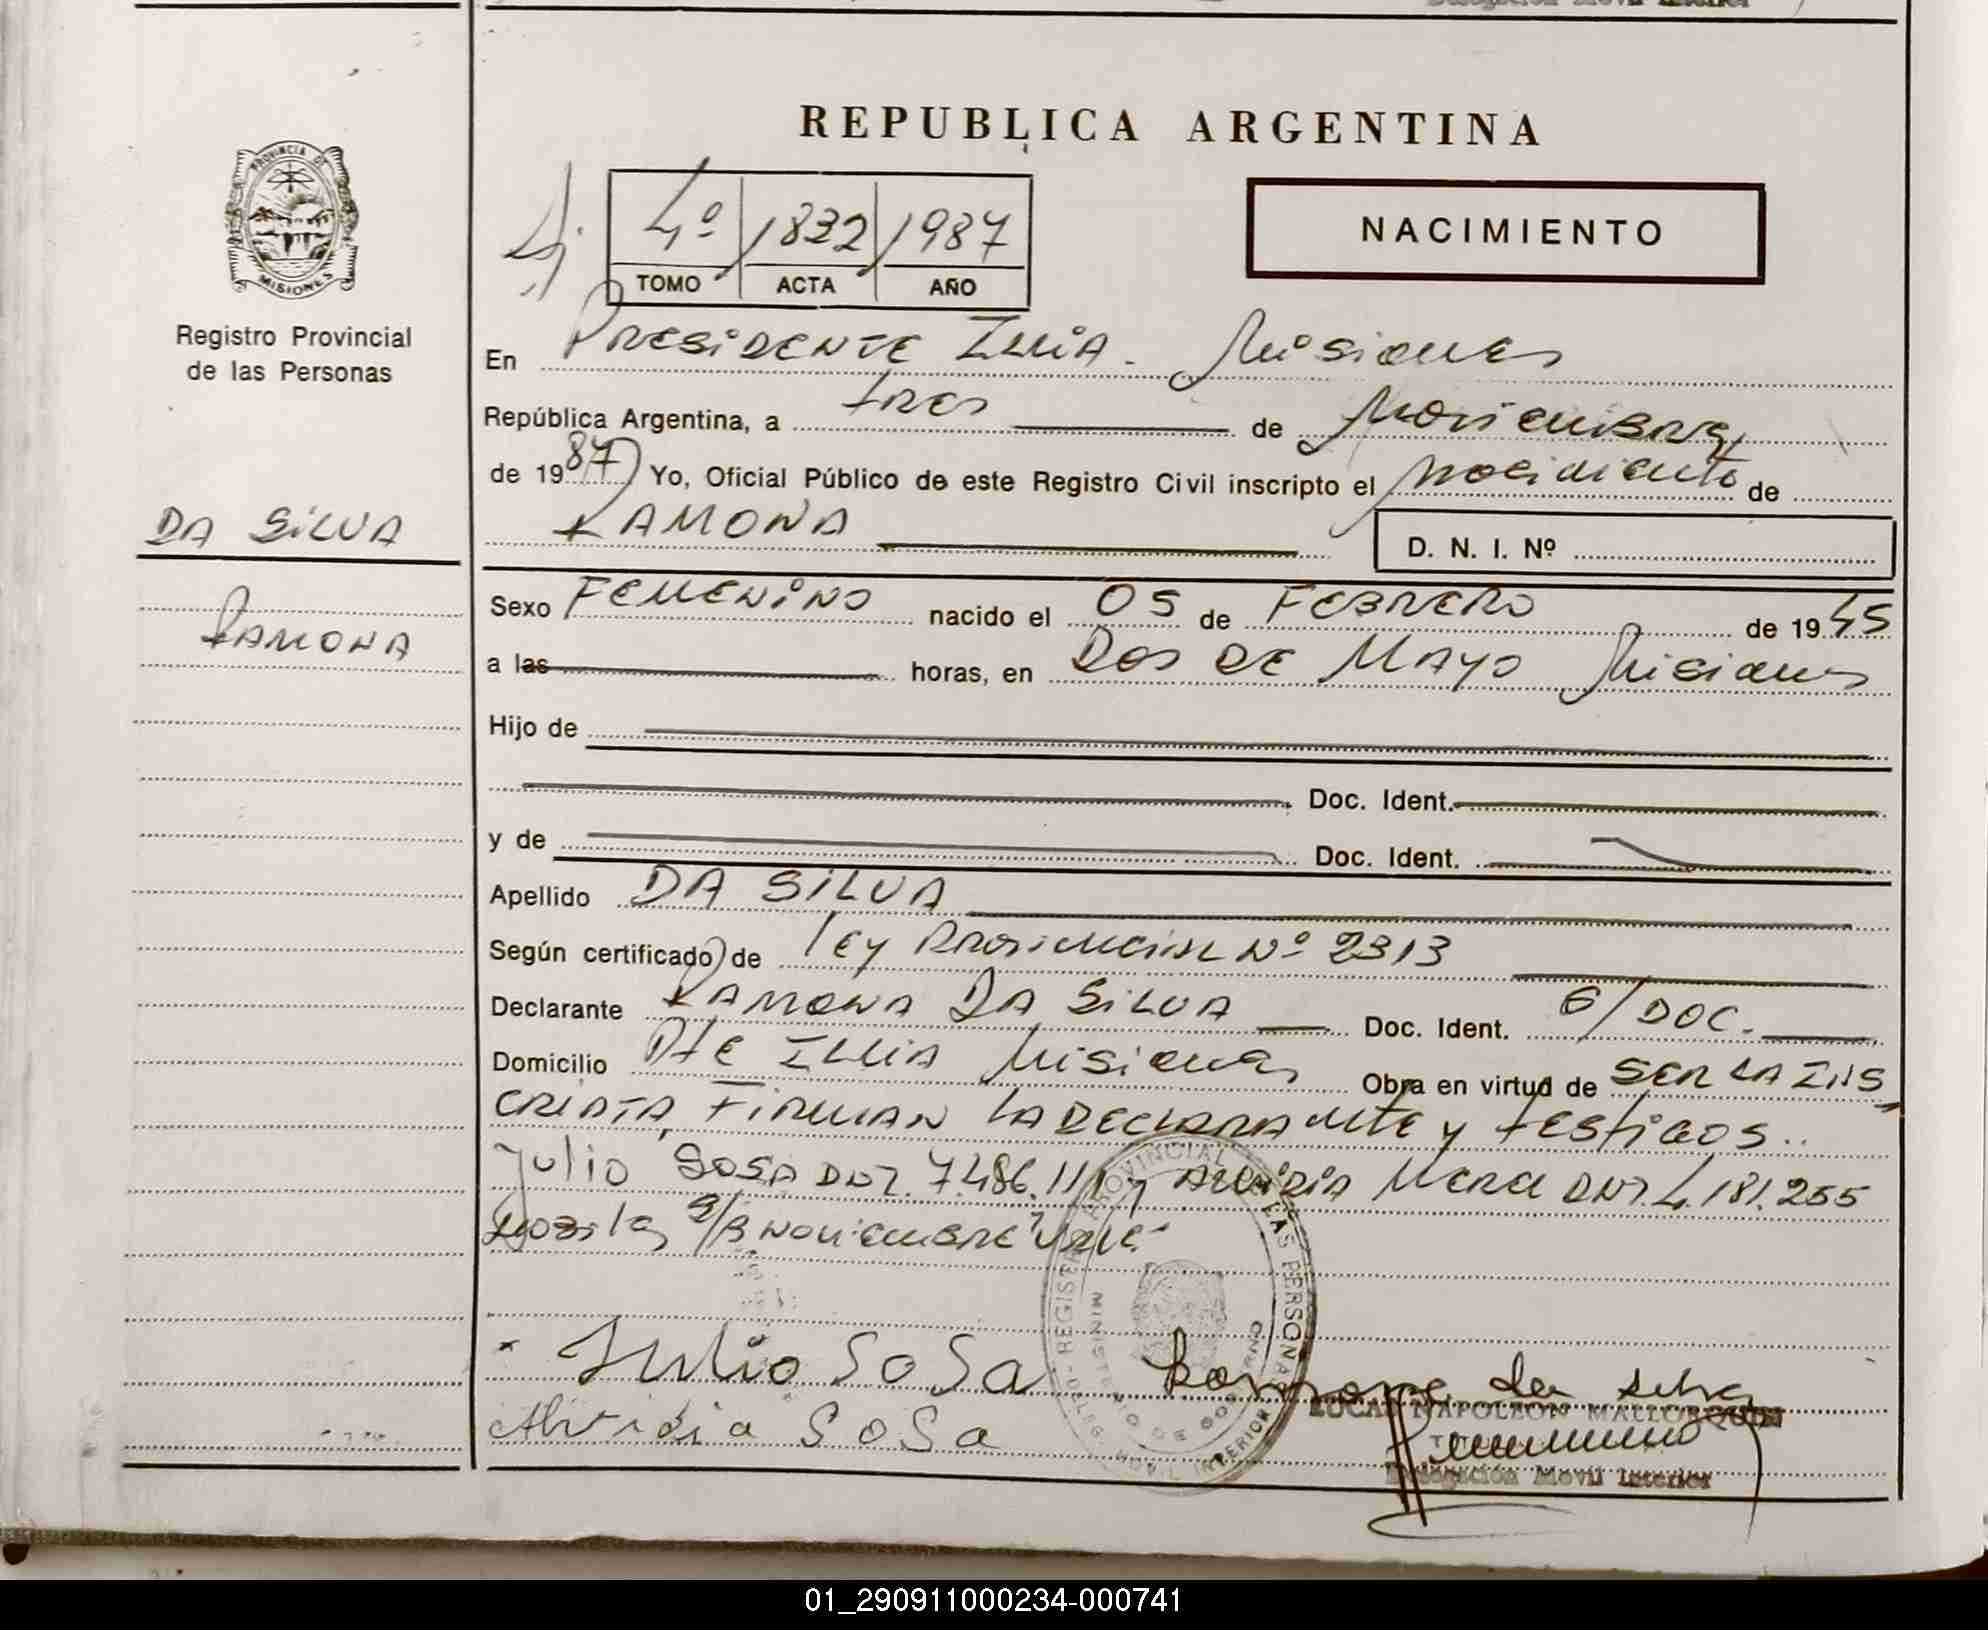 REPUBLICA ARGENTINA
PROVINCIA DE
MISIONES
4º 1832 1987
TOMO ACTA AÑO
NACIMIENTO
Registro Provincial
de las Personas
En PRESIDENTE ILLIA. Misiones
República Argentina, a tres de Noviembre
de 1987 Yo, Oficial Público de este Registro Civil inscripto el nacimiento de
RAMONA D. N. I. Nº
DA SILVA
RAMONA
Sexo FEMENINO nacido el 05 de FEBRERO de 1945
a las horas, en DOS DE MAYO Misiones
Hijo de
Doc. Ident.
y de Doc. Ident.
Apellido DA SILVA
Según certificado de Ley Provincial Nº 2313
Declarante RAMONA DA SILVA Doc. Ident. S/DOC.
Domicilio Pte ILLIA Misiones Obra en virtud de SER LA INS
CRIPTA, FIRMAN LA DECLARANTE y TESTIGOS..
Julio SOSA DNI. 7.486.111 y DNI. 4.181.255
S/B NOVIEMBRE Vale.
REGISTRO PROVINCIAL DE LAS PERSONAS
MINISTERIO DE GOBIERNO
DELEG. MOVIL INTERIOR
Julio SoSa Ramona da silva
LUCAS NAPOLEON MALLORQUIN
Alvidia SoSa
Delegación Movil Interior
01_290911000234-000741